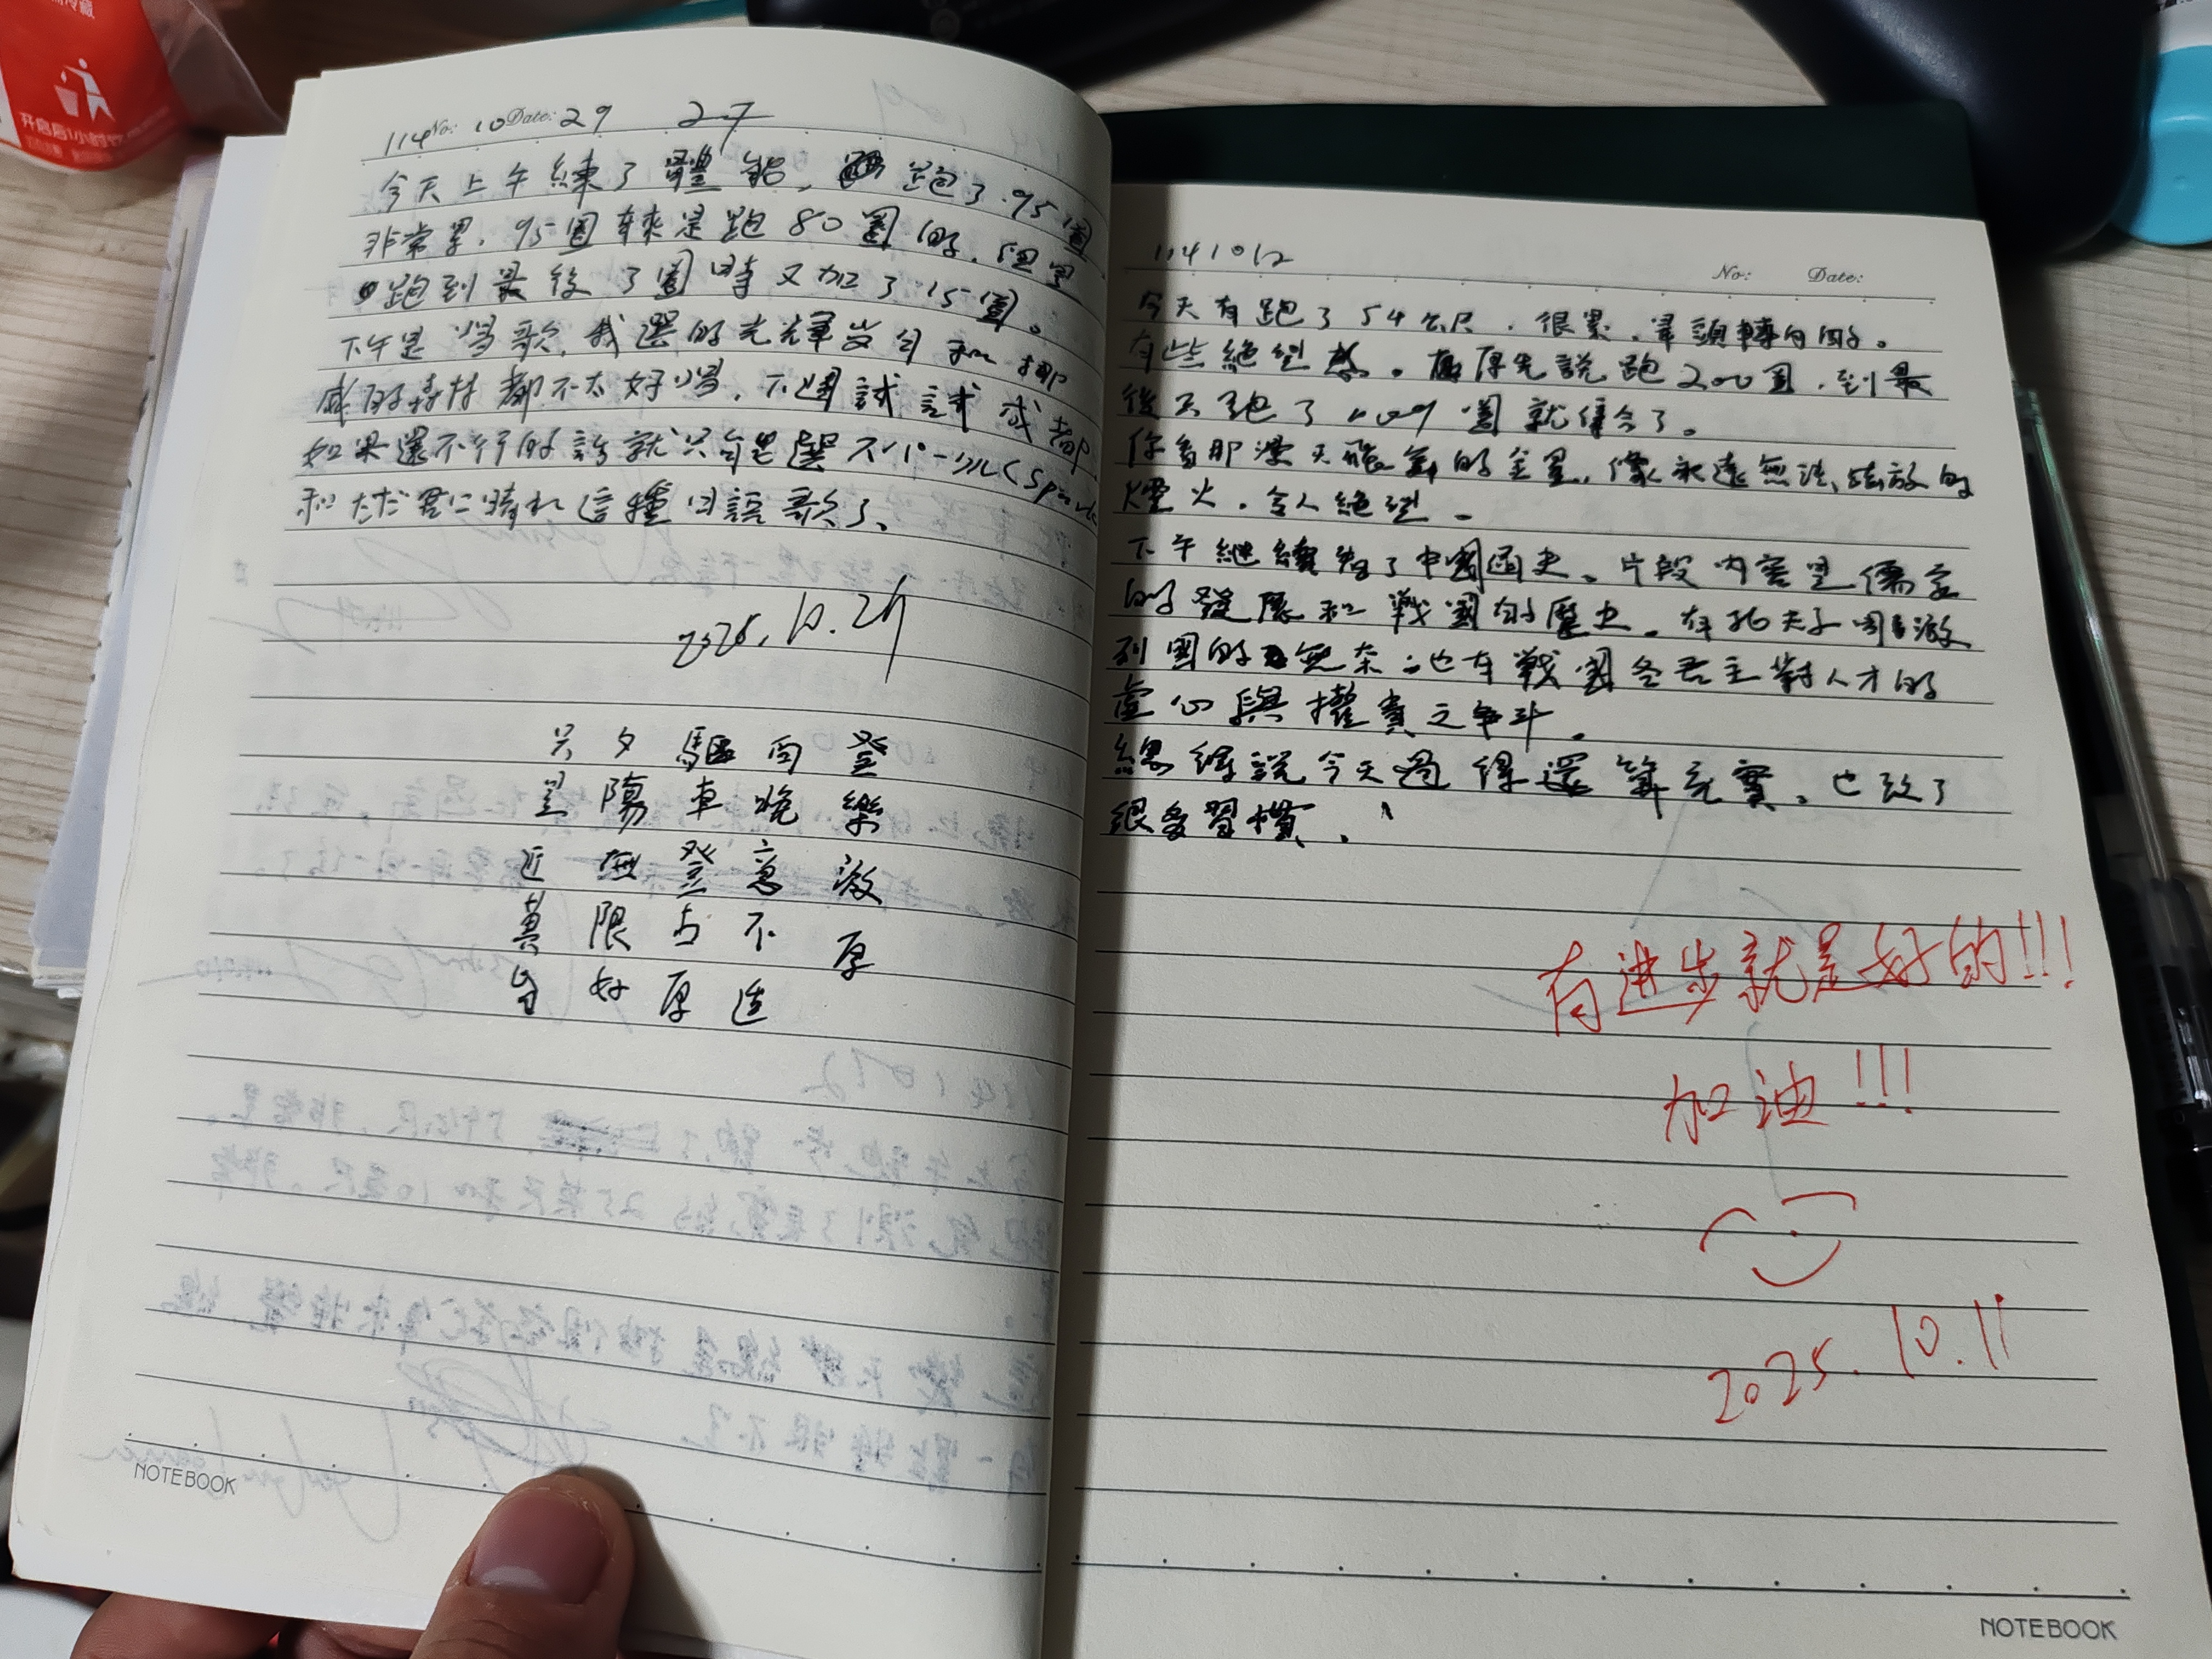 114 No: 10 Date: 29 27
今天上午練了體能，跑了95圈
非常累。95圈本來是跑80圈的，但是
跑到最後3圈時又加了15圈。
下午是唱歌，我選的光輝歲月和挪
威的森林都不太好唱，不過試試或許
如果還不行的話就只能是選スパークル(Spark
和ただ君に晴れ這種日語歌了。
2025.10.29
登樂遊原
向晚意不適
驅車登古原
夕陽無限好
只是近黃昏
NOTEBOOK
1141012
No: Date:
今天有跑了54公尺，很累，暈頭轉向的。
有些絕望感。原先說跑200圈，到最
後只跑了109圈就集合了。
你看那漫天飛舞的金星，像永遠無法綻放的
煙火，令人絕望。
下午繼續看了中國通史。片段內容是儒家
的發展和戰國的歷史。有孔夫子周遊
列國的無奈；也有戰國各君主對人才的
虛心與權貴之爭斗。
總得說今天過得還算充實。也改了
很多習慣。
有进步就是好的!!!
加油!!!
2025.10.11
NOTEBOOK
开启后1小时饮